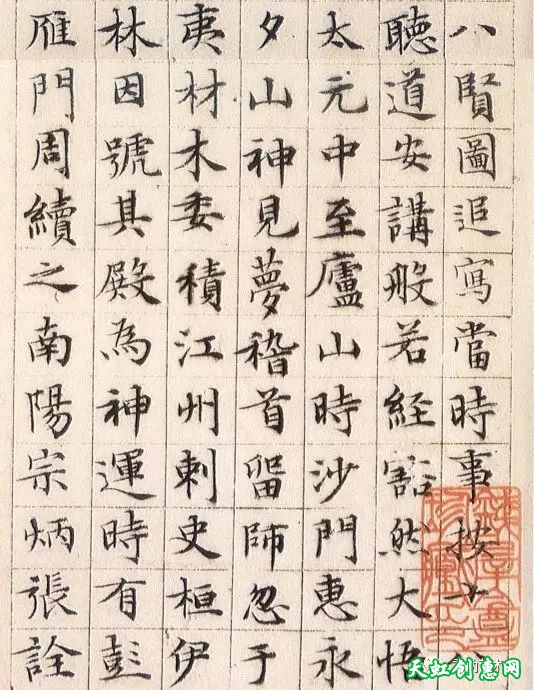 八賢圖追寫當時事按十八
聽道安講般若經豁然大悟
太元中至廬山時沙門惠永
夕山神見夢稽首留師忽于
夷材木委積江州刺史桓伊
林因號其殿為神運時有彭
雁門周續之南陽宗炳張詮
天虹创意网